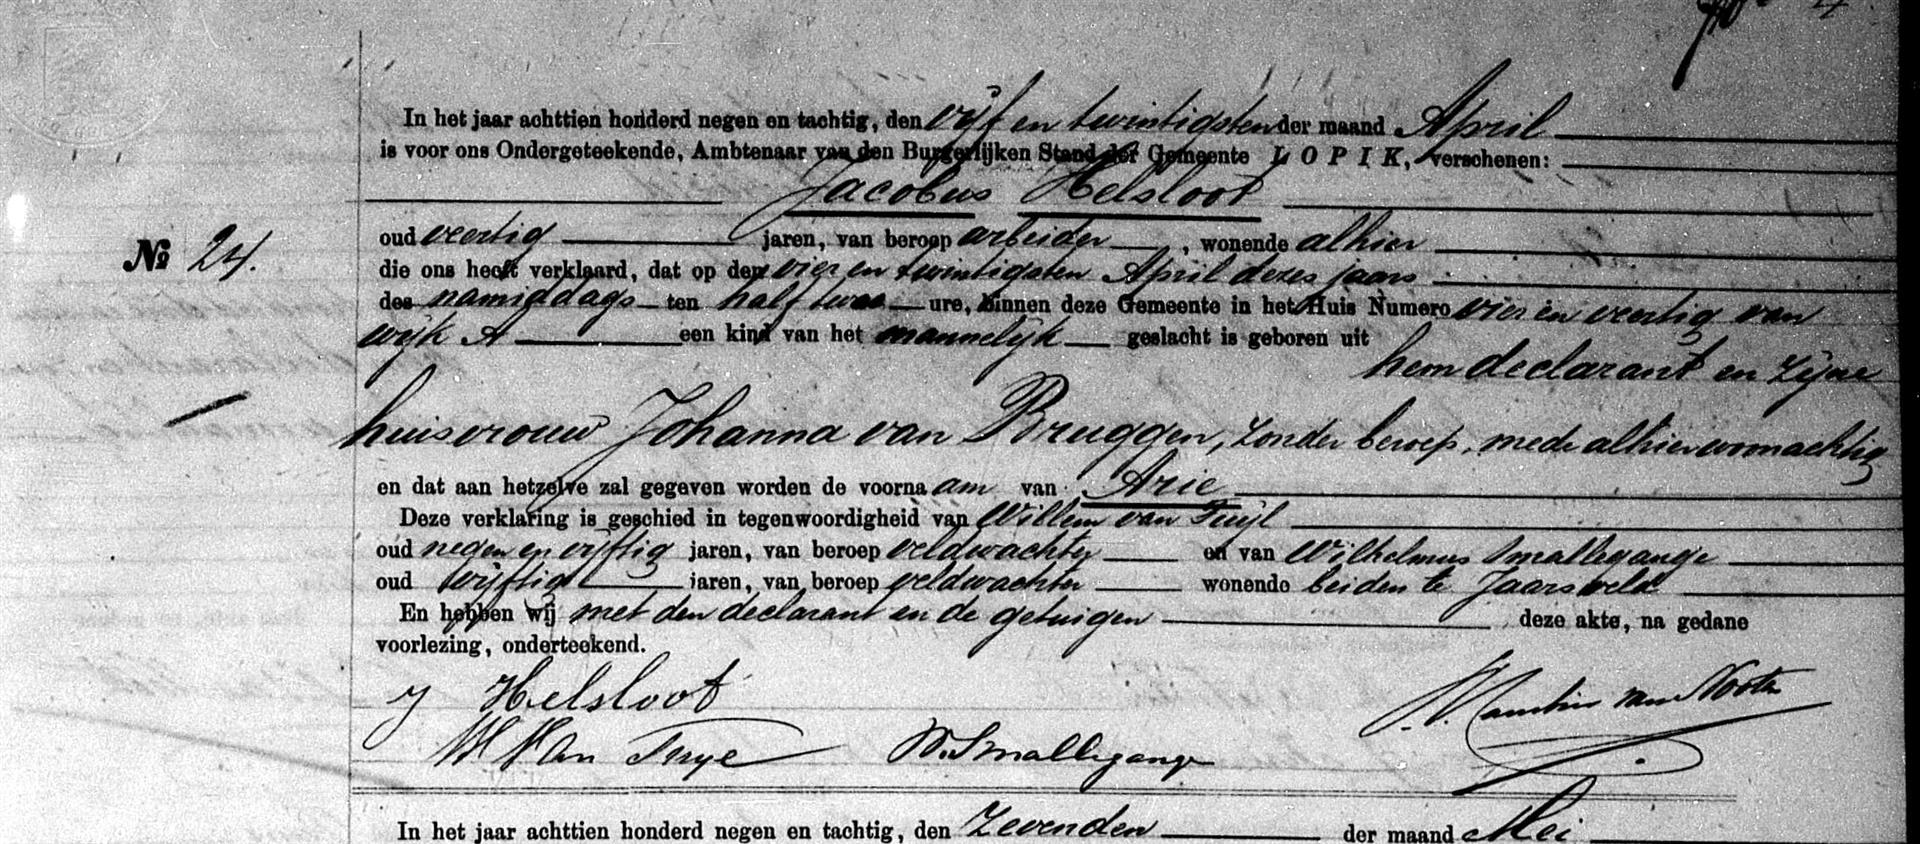 In het jaar achttien honderd negen en tachtig, den vijf en twintigsten der maand April
is voor ons Ondergeteekende, Ambtenaar van den Burgerlijken Stand der Gemeente LOPIK, verschenen:
Jacobus Helsloot
№ 24.
oud veertig jaren, van beroep arbeider, wonende alhier
die ons heeft verklaard, dat op den vier en twintigsten April dezes jaars
des namiddags ten half twee ure, binnen deze Gemeente in het Huis Numero vier en veertig van
wijk A een kind van het mannelijk geslacht is geboren uit
hem declarant en zijne
huisvrouw Johanna van Bruggen, zonder beroep, mede alhier woonachtig
en dat aan hetzelve zal gegeven worden de voornaam van Arie
Deze verklaring is geschied in tegenwoordigheid van Willem van Tuijl
oud negen en vijftig jaren, van beroep veldwachter en van Wilhelmus Smallegange
oud vijftig jaren, van beroep veldwachter wonende beiden te Jaarsveld
En hebben wij met den declarant en de getuigen deze akte, na gedane
voorlezing, onderteekend.
J Helsloot
W Smallegange
In het jaar achttien honderd negen en tachtig, den Zevenden der maand Mei